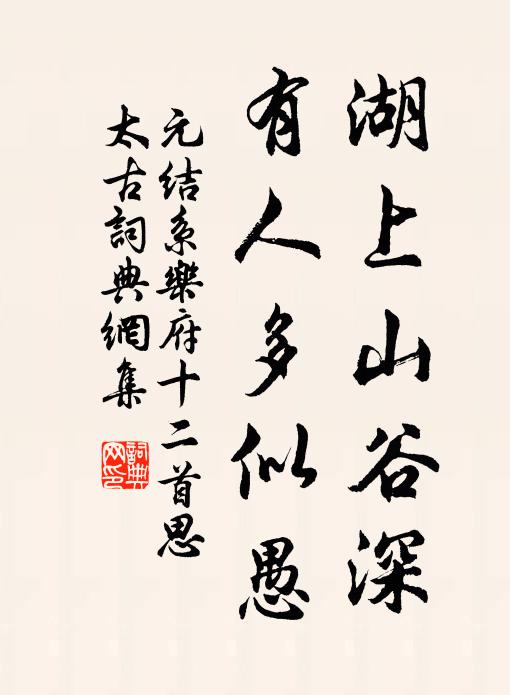 湖上山谷深
有人多似愚
元結系樂府十二首思
太古詞典網集
詞典网印